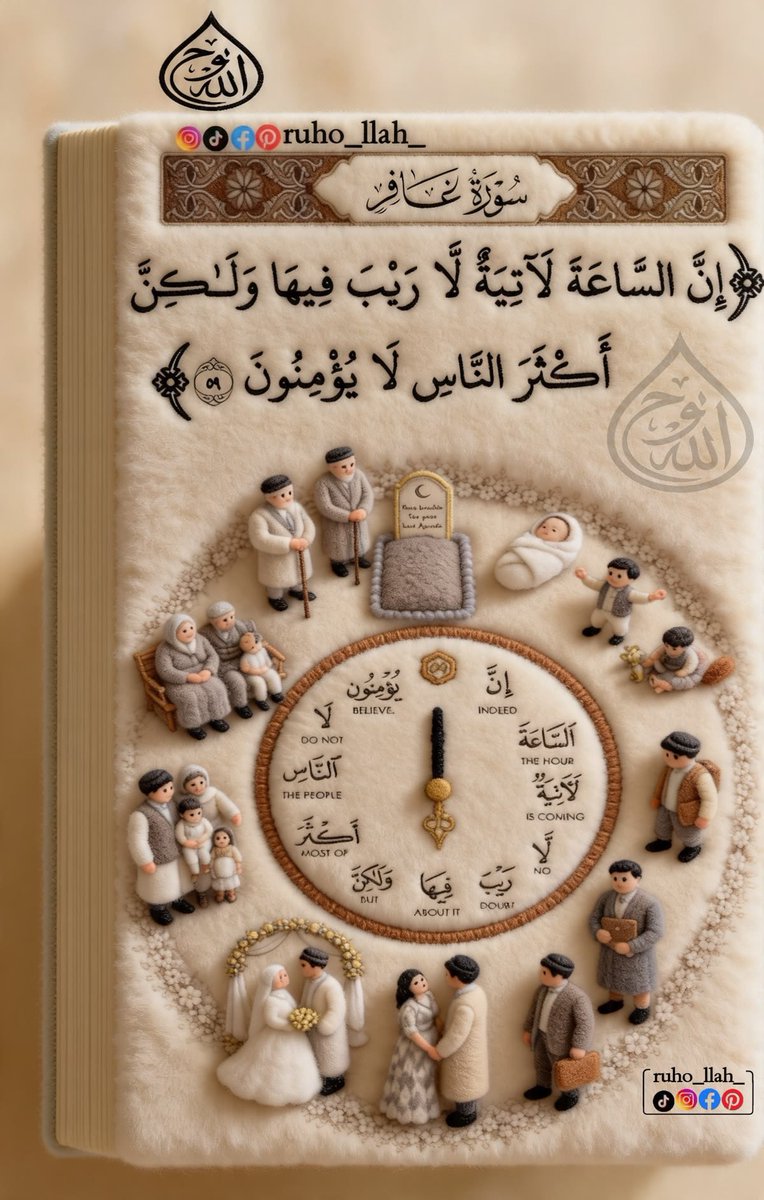 نوح الله
ruho_llah_
سُورَةُ غَافِر
﴿إِنَّ السَّاعَةَ لَآتِيَةٌ لَّا رَيْبَ فِيهَا وَلَـٰكِنَّ
أَكْثَرَ النَّاسِ لَا يُؤْمِنُونَ ٥٩﴾
إِنَّ
INDEED
السَّاعَةَ
THE HOUR
لَآتِيَةٌ
IS COMING
لَّا
NO
رَيْبَ
DOUBT
فِيهَا
ABOUT IT
وَلَٰكِنَّ
BUT
أَكْثَرَ
MOST OF
النَّاسِ
THE PEOPLE
لَا
DO NOT
يُؤْمِنُونَ
BELIEVE.
ruho_llah_